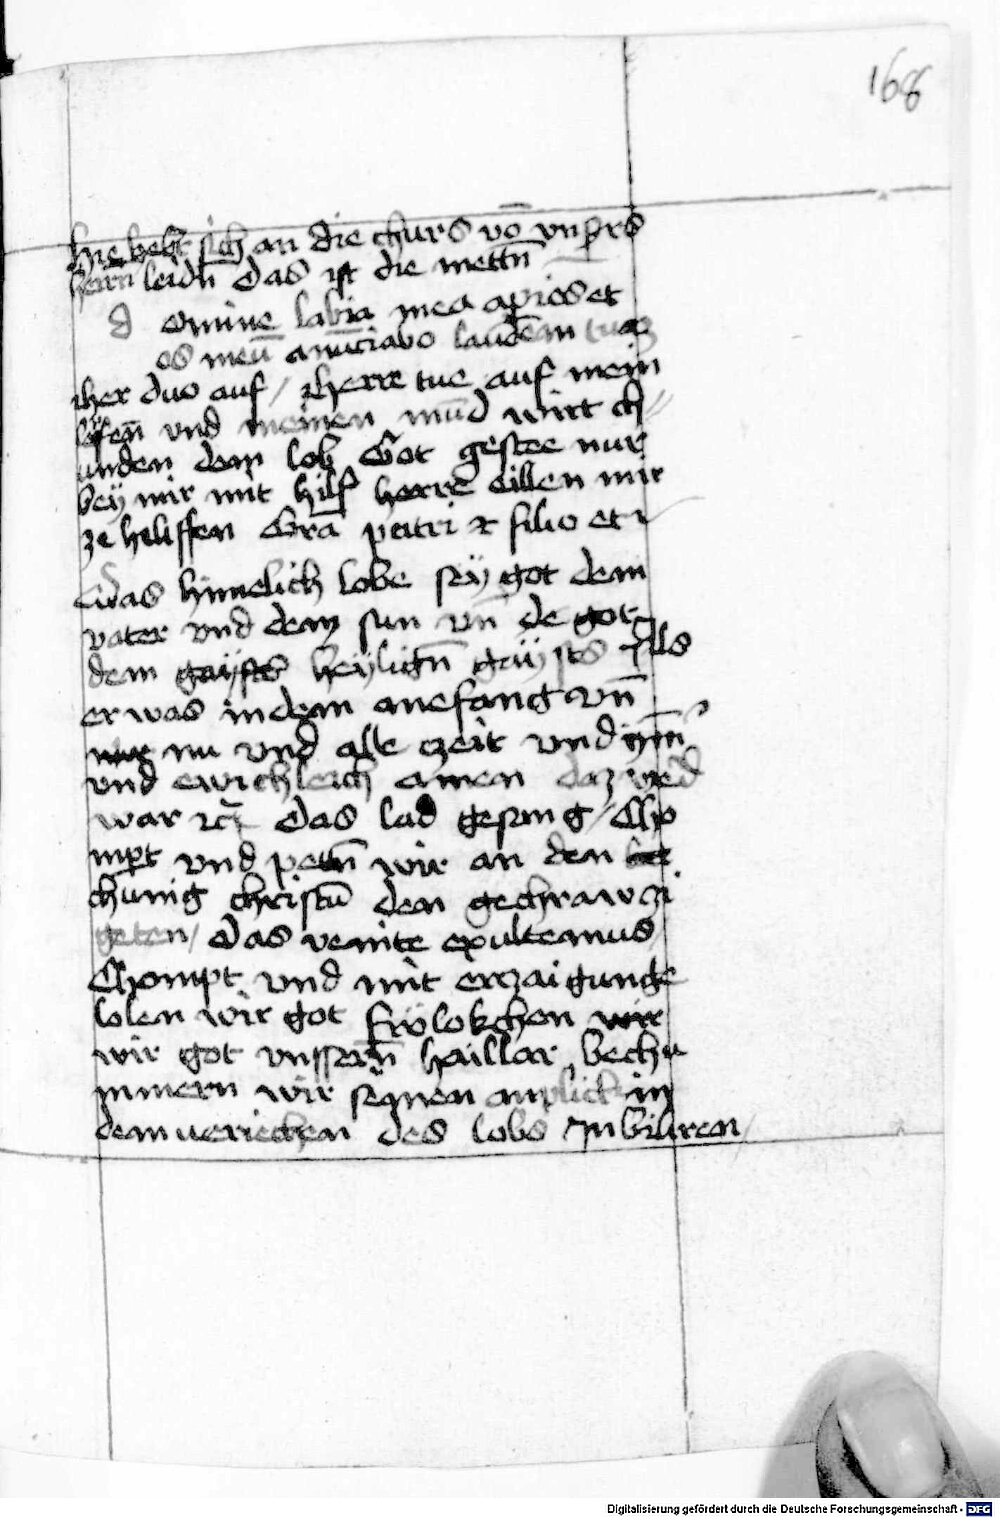 168
hie hebt sich an die churs vo̅ vnsers
herrn leidn̅ Das ist die mettn̅
d omine labia mea aperies et
os meu̅ anu̅ciabo laudem tuaz
iher duo auf / herre tue auf mein
lefsen̅ vnd meinen mu̅d wirt ch//
unden dein lob Got gestee mir
bey mir mit hilf herre eillen mir
ze helffen Gra̅ patri et filio et
Das himelich lobe seÿ got dem
vater vnd dem sun vn̅ de got
dem gaÿsts heylign̅ gaÿsts Als
er was in dem anefang vn̅
nu vnd alle czeit vnd
vnd ewichleich amen daz
war Das lad gesang / Cho
mpt vnd petn̅ wir an den
chunig christu̅ den gechrawczi
geten / Das venite exultemus
Chompt vnd mit erczaigunge
lolen wir got frölokchen wir
wir got vnssern̅ haillar bechu
mmern wir seinen anplick in
dem veriechen des lobs Jubiliren /
Digitalisierung gefördert durch die Deutsche Forschungsgemeinschaft - DFG